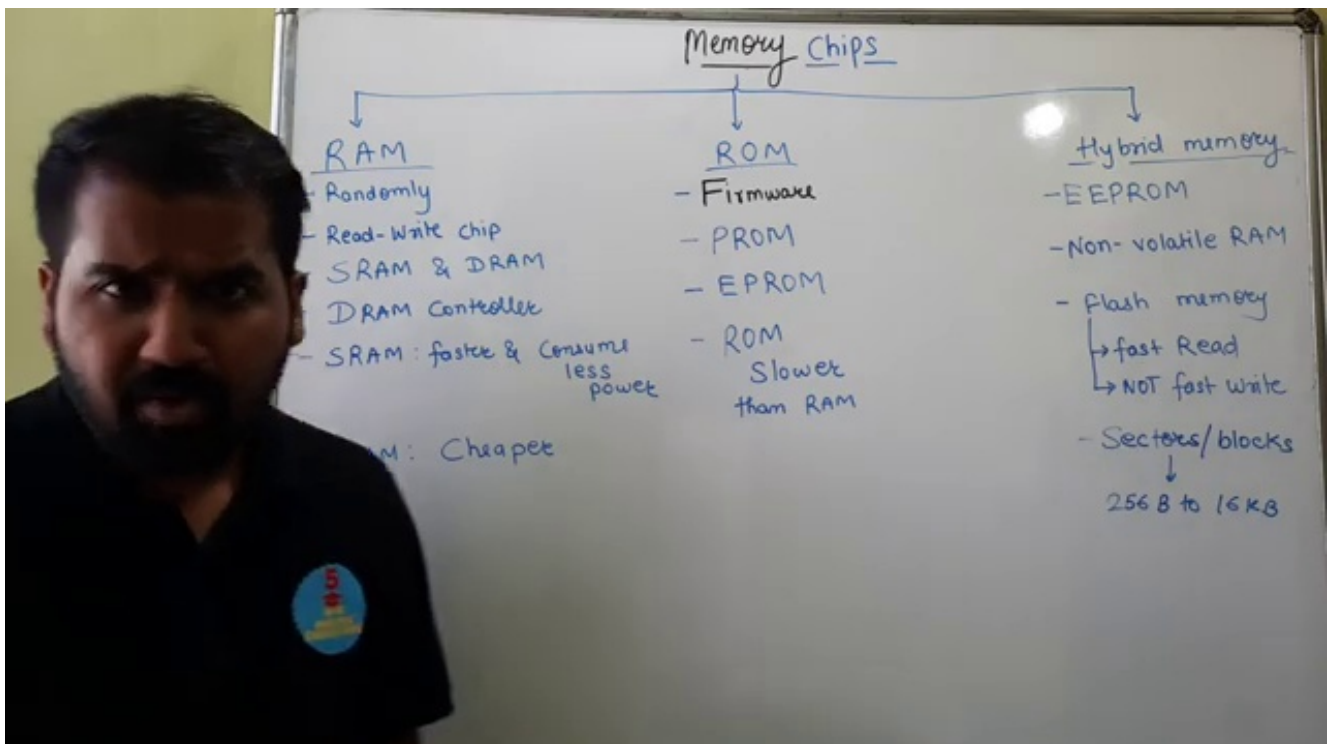 Memory Chips
RAM
- Randomly
- Read-Write chip
SRAM & DRAM
DRAM Controller
- SRAM: faster & Consume
less
power
M: Cheaper
ROM
- Firmware
- PROM
- EPROM
- ROM
Slower
than RAM
Hybrid memory
- EEPROM
- Non-volatile RAM
- flash memory
fast Read
NOT fast write
- Sectors/blocks
256 B to 16 KB
5